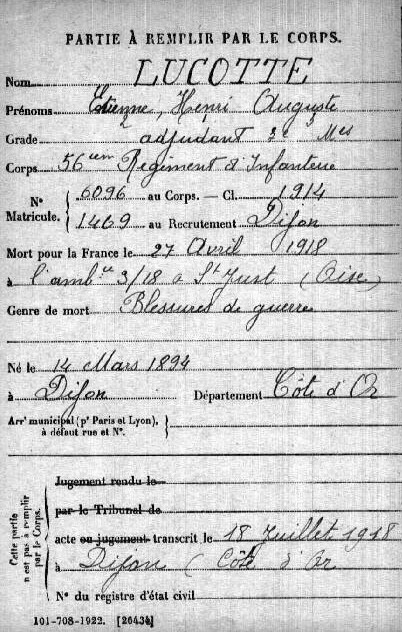 PARTIE À REMPLIR PAR LE CORPS.
Nom LUCOTTE
Prénoms Etienne, Henri Auguste
Grade adjudant 3e Mes
Corps 56em Régiment d'Infanterie
N° Matricule. 6096 au Corps. — Cl. 1914
1469 au Recrutement Dijon
Mort pour la France le 27 Avril 1918
à l'ambce 3/18 à St Just (Oise)
Genre de mort Blessures de guerre
Né le 14 Mars 1894
à Dijon Département Côte d'Or
Arrt municipal (pr Paris et Lyon),
à défaut rue et N°.
Cette partie n'est pas à remplir par le Corps.
Jugement rendu le
par le Tribunal de
acte ou jugement transcrit le 18 Juillet 1918
à Dijon (Côte d'Or
N° du registre d'état civil
101-708-1922. [26434]